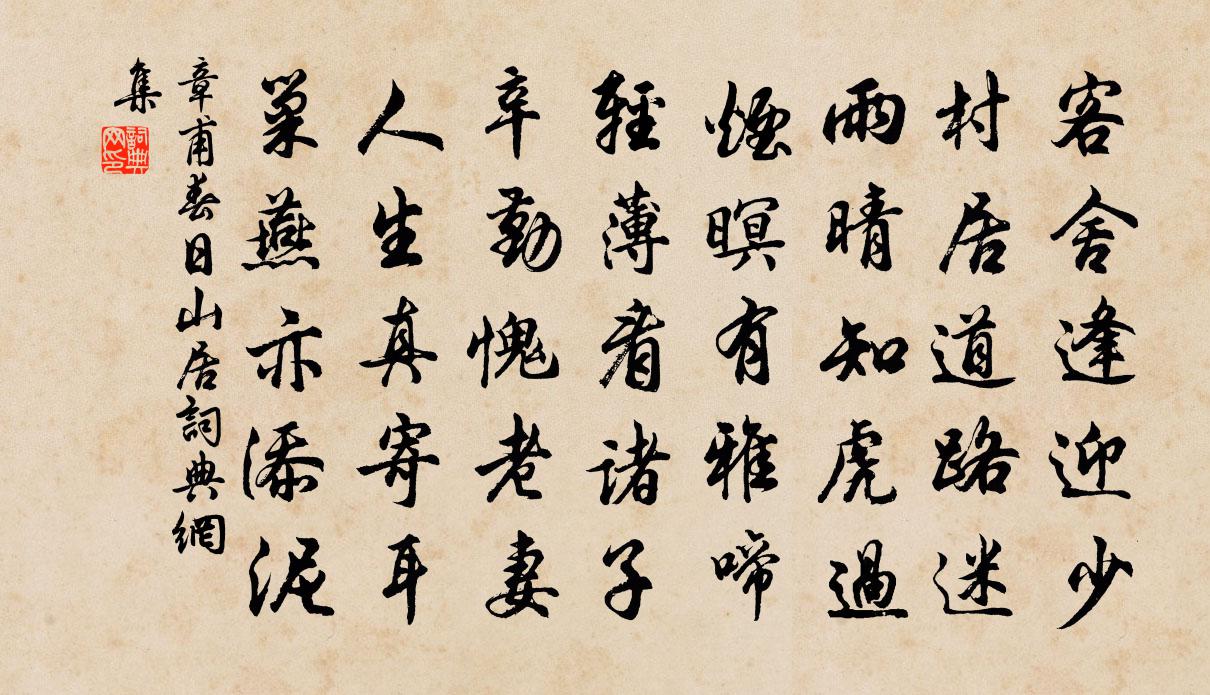 客舍逢迎少
村居道路迷
雨晴知虎過
煙暝有雅啼
輕薄看諸子
辛勤愧老妻
人生真寄耳
巢燕亦添泥
章甫春日山居詞典網
集
詞典网印